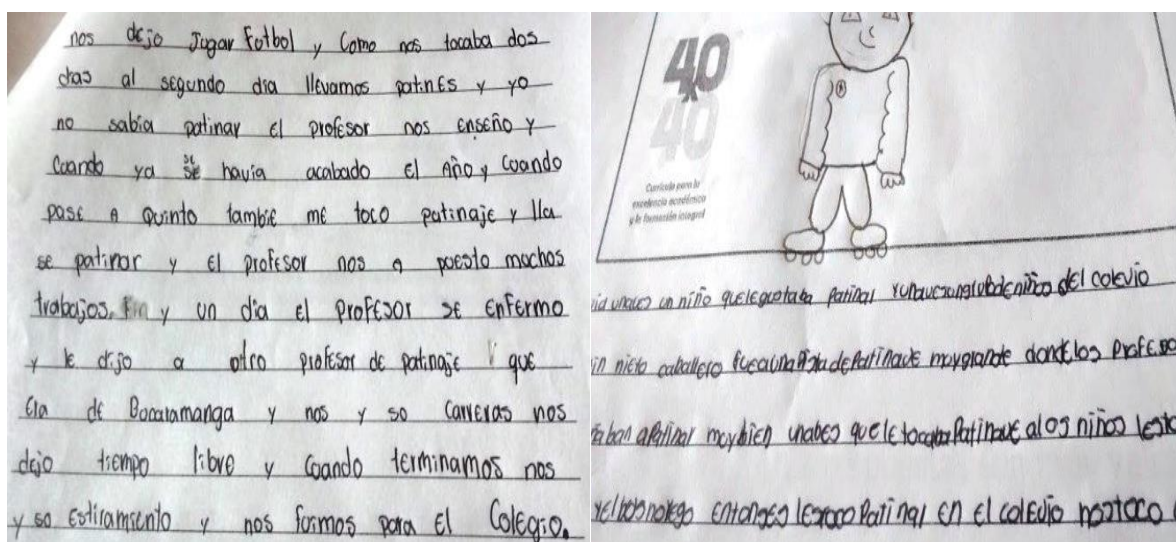 nos dejo Jugar Fotbol y Como nos tocaba dos
dias al segundo dia llevamos patines y yo
no sabia patinar el profesor nos enseño y
Coando ya se se havia acabado el Año y Coando
pase a Quinto tambie me toco patinaje y lla
se patinar y el profesor nos a poesto mochos
trabojos. Fin y un dia el Profesor se enfermo
y le dijo a otro profesor de patinaje que
Era de Bocaramanga y nos y so Carreras nos
dejo tiempo libre y Coando terminamos nos
y so Estiramiento y nos foimos para el Colegio.
40
x
40
Currículo para la
excelencia académica
y la formación integral
ia unabes un niño que le gustaba Patinar y unaves un grupo de niños del colevio
in nieto caballero fue a una Pista de Patinave moy grande donde los Profeso
taban a Patinar moy bien unabes que le tocaba Patinave a los niños les to
y el bos no lego entonses les toco Patinar en el colevio nos toco